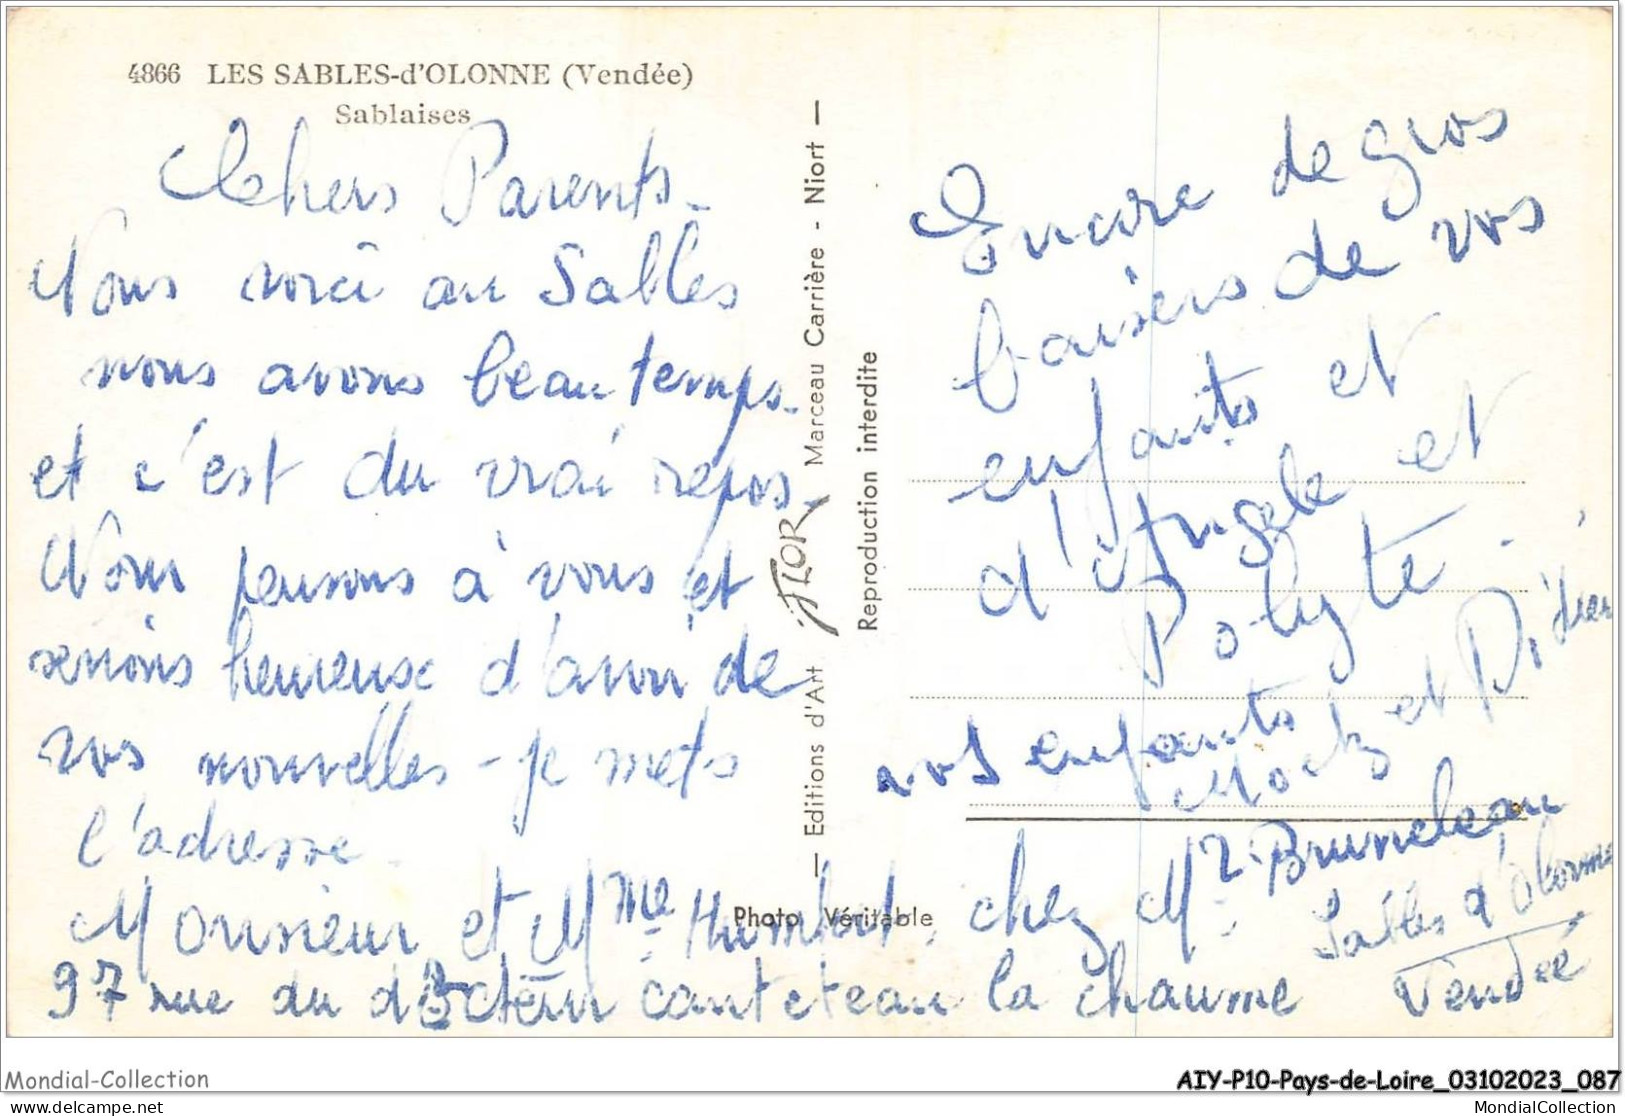 4866 LES SABLES-d'OLONNE (Vendée)
Sablaises
Chers Parents.
Nous voici au Sables
nous avons beau temps.
et c'est du vrai repos.
Nous pensons à vous et
serions heureuse d'avoir de
vos nouvelles - je mets
l'adresse.
Monsieur et Mme Humbert. chez Mr Bruneleau
97 rue du docteur canteteau la chaume
Sables d'Olonne
Vendée
— Editions d'Art JLOR Marceau Carrière - Niort —
Reproduction interdite
Photo Véritable
Encore de gros
baisers de vos
enfants et
d'Angele et
Polyte.
vos enfants
et Didier
Mondial-Collection
www.delcampe.net
AIY-P10-Pays-de-Loire_03102023_087
MondialCollection